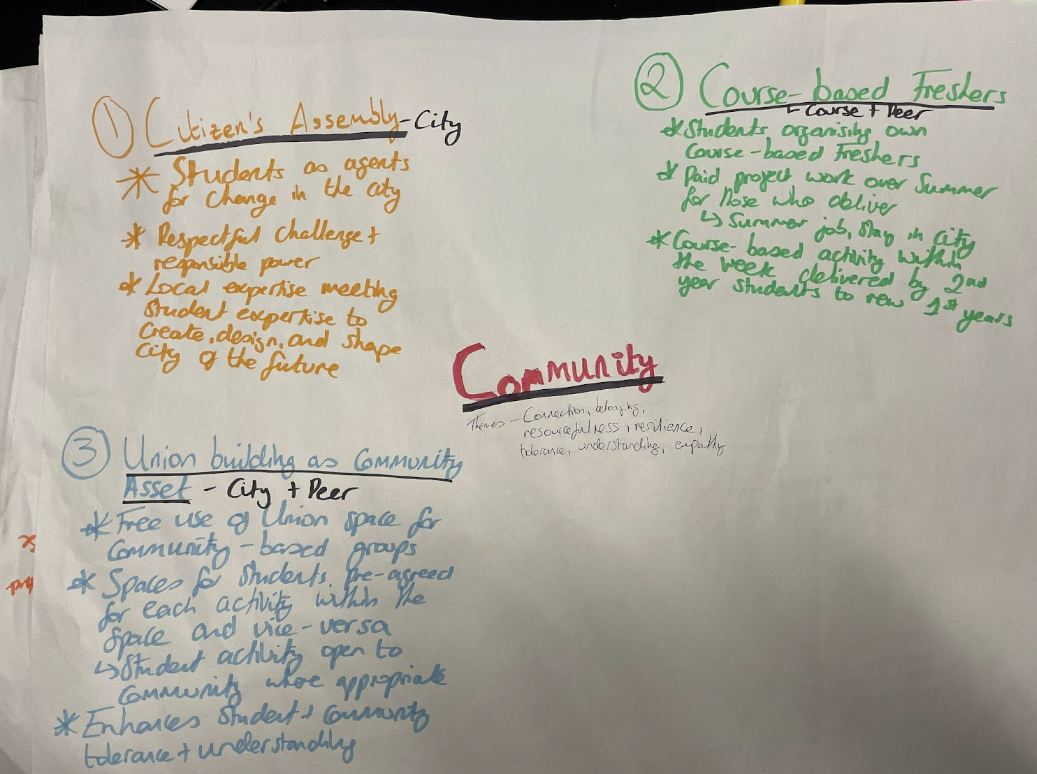 ① Citizen's Assembly - City
* Students as agents
for change in the city
* Respectful challenge +
responsible power
* Local expertise meeting
student expertise to
create, design, and shape
city of the future
② Course-based Freshers
↳ Course + Peer
* Students organising own
course-based Freshers
* Paid project work over Summer
for those who deliver
↳ Summer job, stay in city
* Course-based activity within
the week delivered by 2nd
year students to new 1st years
Community
Themes - Connection, belonging,
resourcefulness, resilience,
tolerance, understanding, empathy
③ Union building as community
Asset - City + Peer
* Free use of Union space for
community-based groups
* Spaces for students pre-agreed
for each activity within the
space and vice-versa
↳ Student activity open to
community where appropriate
* Enhances student + community
tolerance + understanding